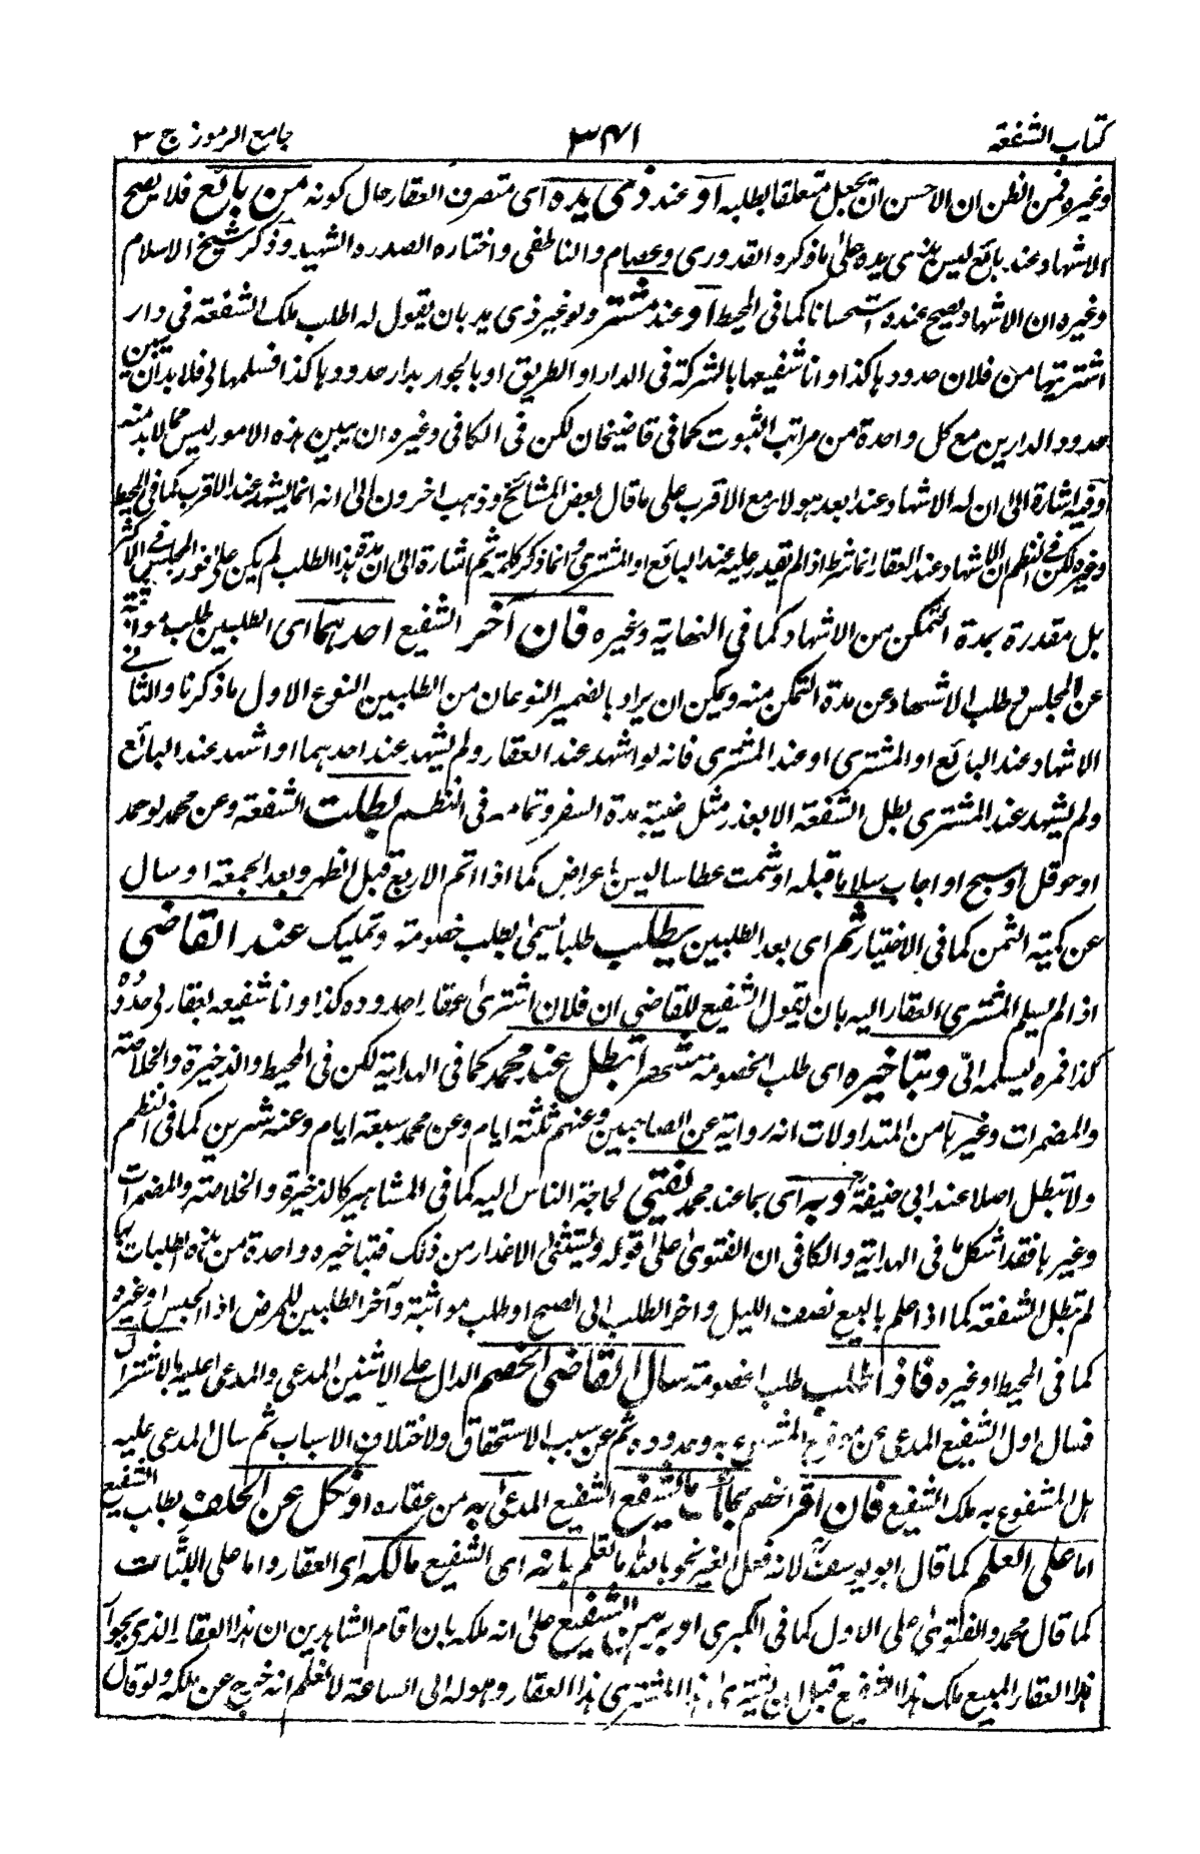 كتاب الشفعة
٣٤١
جامع الرموز ج ٣
وغيره فمن الظن ان الاحسن ان يجعل متعلقا بطلبه او عند ذى يده اى متصرف العقار حال كونه من بائع فلا يصح
الاشهاد عند بائع ليس بذى يده على ما ذكره القدورى وعصام والناطفى واختاره الصدره الشهيد وذكر شيخ الاسلام
وغيره ان الاشهاد يصح عنده استحسانا كما فى المحيط او عند مشتر ولو غير ذى يد بان يقول له اطلب ملك الشفعة فى دار
اشتريتها من فلان حدودها كذا وانا شفيعها بالشركة فى الدار او الطريق او بالجوار بدار حدودها كذا فسلمها لى فلا بد ان يبين
حدود الدارين مع كل واحدة من مراتب الثبوت كما فى قاضيخان لكن فى الكافى وغيره ان يبين هذه الامور ليس مما لا بد منه
وفيه اشارة الى ان له الاشهاد عند ابعد هولاء مع الاقرب على ما قال بعض المشائخ وذهب اخرون الى انه انما يشهد عند الاقرب كما فى المحيط
وغيره لكن فى النظم ان الاشهاد عند العقار انما شرط اذا لم يقدر عليه عند البائع او المشترى وانما ذكر كلمة ثم اشارة الى ان مدة هذا الطلب لم يكن على فور المجلس فى الاكثر
بل مقدرة بمدة التمكن من الاشهاد كما فى النهاية وغيره فان آخر الشفيع احدهما اى الطلبين طلب مواثبة
عن المجلس وطلب الاشهاد عن مدة التمكن منه ويمكن ان يراد بالضمير النوعان من الطلبين النوع الاول ما ذكرنا والثانى
الاشهاد عند البائع او المشترى او عند المشترى فانه لو اشهد عند العقار ولم يشهد عند احدهما او اشهد عند البائع
ولم يشهد عند المشترى بطل الشفعة الا بعذر مثل غيبة مدة السفر وتمامه فى النظم بطلت الشفعة وعن محمد لو حمد
او حوقل او سبح او اجاب سلاما قبله او شمت عطاسا ليس باعراض كما اذا اتم الاربع قبل الظهر وبعد الجمعة او سال
عن كمية الثمن كما فى الاختيار ثم اى بعد الطلبين يطلب طلبا يسمى بطلب خصومة وتمليك عند القاضى
اذا لم يسلم المشترى العقار اليه بان يقول الشفيع للقاضى ان فلان اشترى عقارا حدوده كذا وانا شفيعه بعقار لى حدوده
كذا فمره يسلمه الىّ وبتاخيره اى طلب الخصومة شهرا تبطل عند محمد كما فى الهداية لكن فى المحيط والذخيرة والخلاصة
والمضمرات وغيرها من المتداولات انه رواية عن الصاحبين وعنهم ثلثة ايام وعن محمد سبعة ايام وعنه شهرين كما فى النظم
ولا تبطل اصلا عند ابى حنيفة وبه اى بما عند محمد يفتى لحاجة الناس اليه كما فى المشاهير كالذخيرة والخلاصة والمضمرات
وغيرها فقد اشكل ما فى الهداية والكافى ان الفتوى على قوله ويستثنى الاعذار من ذلك فبتاخيره واحدة من هذه الطلبات بها
لم تبطل الشفعة كما اذا علم بالبيع نصف الليل واخر الطلب الى الصبح او طلب مواثبة وآخر الطلبين للمرض اذا الحبس او غيره
كما فى المحيط او غيره فاذا طلب طلب الخصومة سال القاضى الخصم الدال على الاثنين المدعى والمدعى عليه بالاشتراك
فسال اول الشفيع المدعى عن موضع المشترى به وحدوده ثم عن سبب الاستحقاق ولاختلاف الاسباب ثم سال المدعى عليه
هل المشفوع به ملك الشفيع فان اقر الخصم بملك ما يشفع الشفيع المدعى به من عقاره او نكل عن الحلف بطلب الشفيع
اما على العلم كما قال ابو يوسف لانه فعل الغير نحو بالله ما تعلم بانه اى الشفيع مالكه اى العقار واما على الثبات
كما قال محمد والفتوى على الاول كما فى الكبرى او برهن الشفيع على انه ملكه بان اقام الشاهدين ان هذا العقار الذى بجوار
هذا العقار المبيع ملك هذا الشفيع قبل ان يشترى هذا المشترى هذا العقار وهو له الى الساعة لا نعلم انه خرج عن ملكه ولو قال